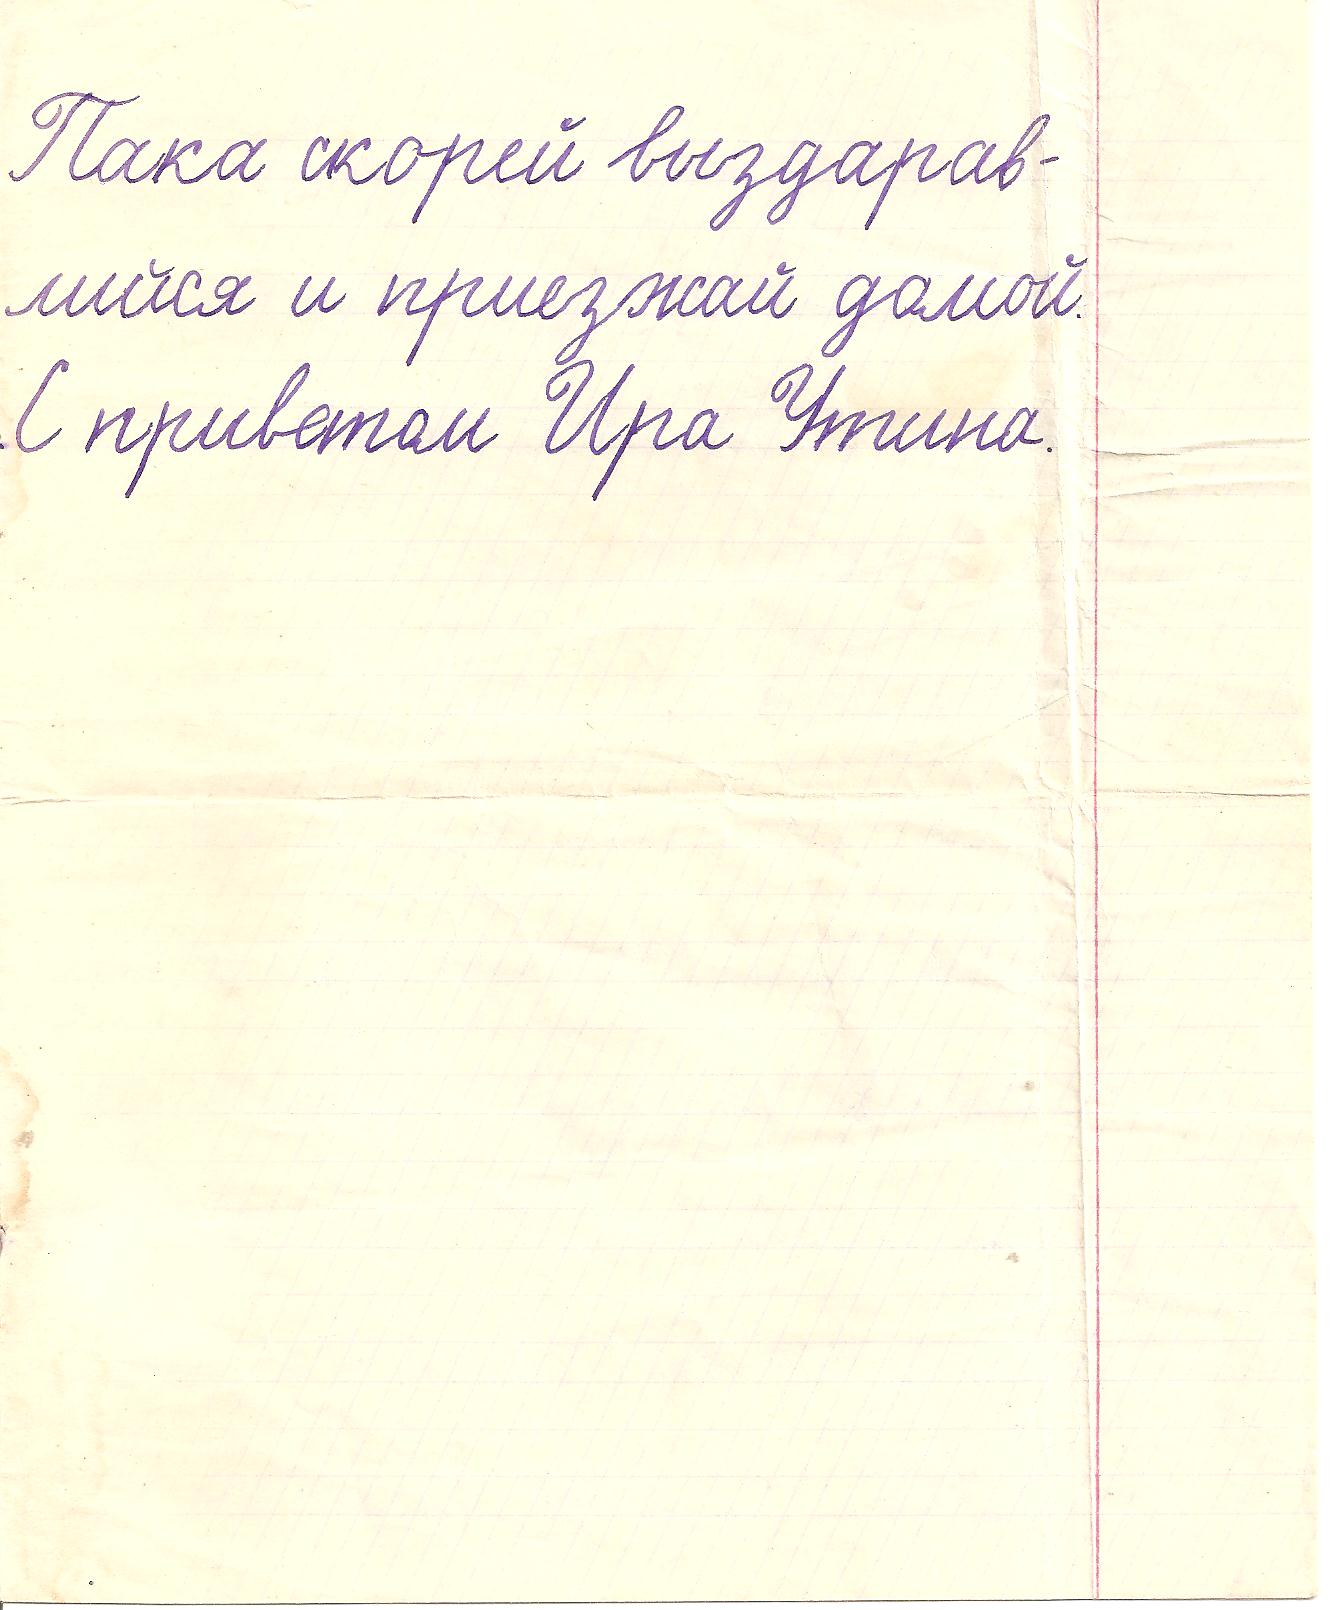 Пака скорей выздарав-
лийся и приезжай домой.
С приветом Ира Утина.